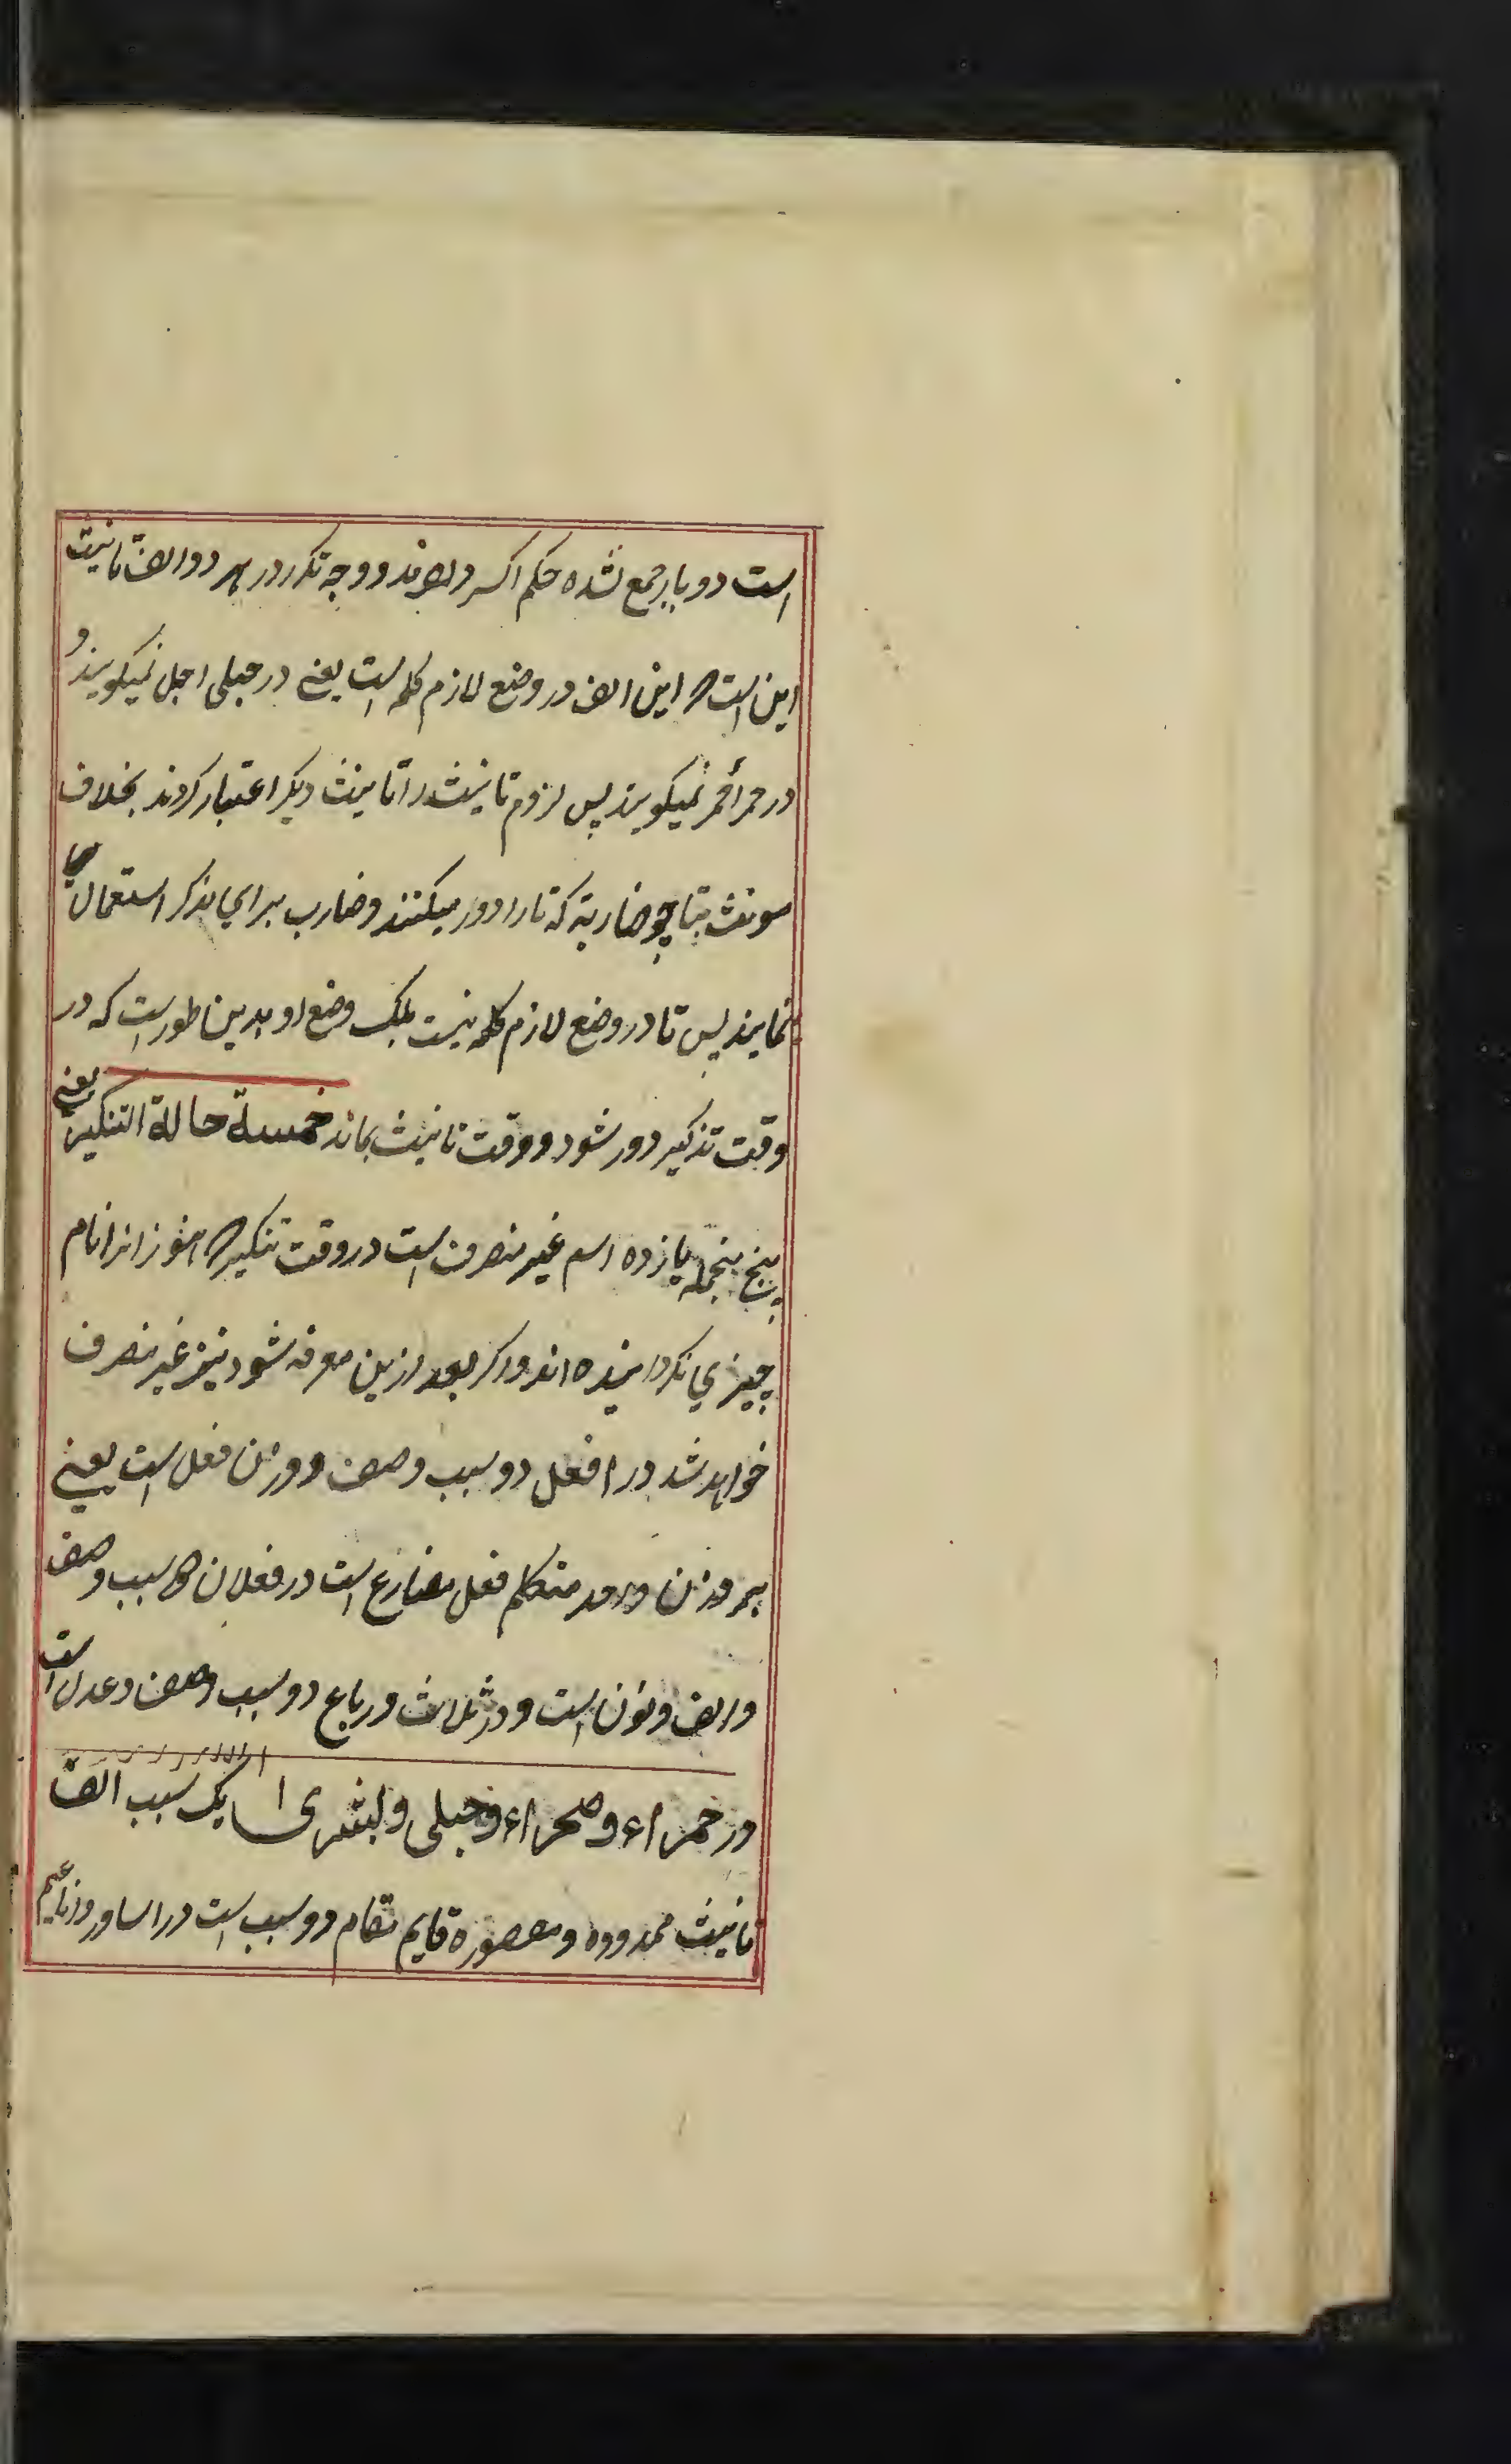 است دو بار جمع نشده حکم اکسر دارند و وجه تکرر در هر دو الف تانیث
این است که این الف در وضع لازم کلمه است یعنی در حبلی احبل نمیکویند و
در حمرا احمر نمیکویند پس لزوم تانیث را تانیث دیکر اعتبار کردند بخلاف
مونث بتا چو ضاربة که تا را دور میکنند و ضارب برای مذکر استعمال
نمایند پس تا در وضع لازم کلمه نیست بلکه وضع او بدین طور است که در
وقت تذکیر دور شود و وقت تانیث بماند خمسة حالة التنکیر یعنی
پنج بنجمله یازده اسم غیر منصرف است در وقت تنکیر که هنوز انرا نام
چیزی نکردانیده اند و اکر بعد ازین معرفه شود نیز غیر منصرف
خواهد شد در افعل دو سبب وصف و وزن فعل است یعنی
بر وزن واحد متکلم فعل مضارع است در فعلان دو سبب وصف
و الف و نون است و در ثلاث و رباع دو سبب وصف و عدل است
در حمراء و صحراء و حبلی و بشری یک سبب الف
تانیث ممدوده و مقصوره قایم مقام دو سبب است در اساور و اناعیم